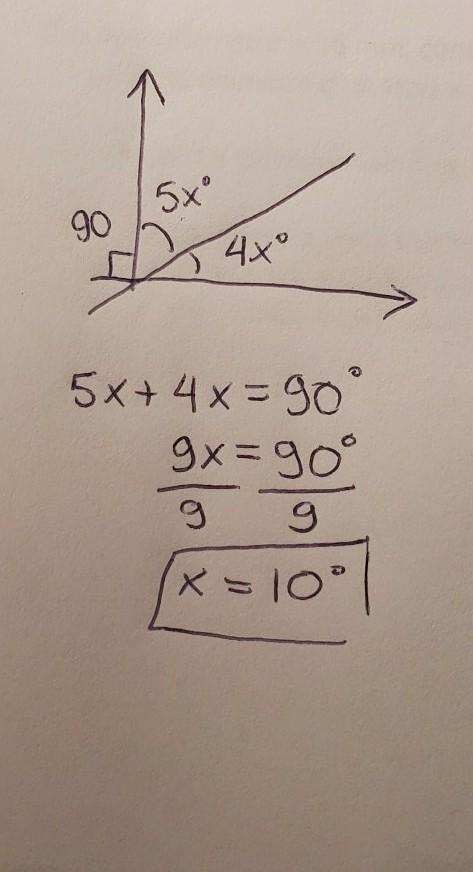 5x°
90
4x°
5x + 4x = 90°
9x = 90°
9 9
x = 10°